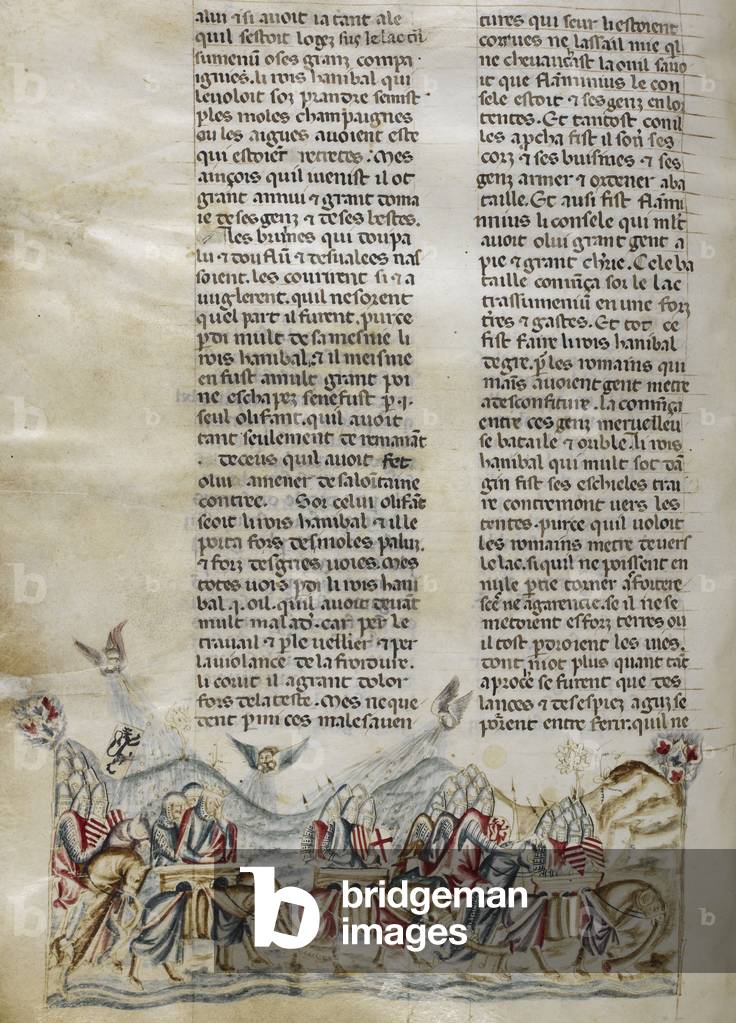 alui ⁊ si auoit ia tant ale
quil sestoit logez sus le lac
sumenū o ses granz compa
ignies. li rois hanibal qui
le uoloit sor prandre se mist
ples moles champaignes
ou les aigues auoient este
qui estoiēt retretes. Mes
ainçois quil uenist il ot
grant annui ⁊ grant doma
ie de ses genz ⁊ de ses bestes.
les brunes qui dou pa
lu ⁊ dou flun ⁊ des ualees nais
soient. les courirent si ⁊ a
uuglerent. quil ne sorent
quel part il furent. purce
pdi mult de sa mesnie li
rois hanibal, ⁊ il meisme
en fust a mult grant poi
ne eschapez se ne fust p .i.
seul olifant. quil auoit
tant seulement de remanāt
de ceus quil auoit fet
o lui amener de saloitaine
contree. Sor celui olifāt
seoit li rois hanibal ⁊ il le
porta fors des moles paluz.
⁊ forz des gries uoies. Mes
totes uois pdi li rois hani
bal .i. oil. quil auoit deuāt
mult malad. car per le
trauail ⁊ ple uellier ⁊ per
la uiolance de la froidure.
li corut il a grant dolor
fors de la teste. Mes ne que
dent p mi ces males auen
tures qui seur li estoient
corues ne lassail mie ql
ne cheuauçast la ou il sauo
it que flāminius le con
sele estoit ⁊ ses genz en lor
tentes. Et tantost com il
les apcha fist il soner ses
corz ⁊ ses buisines ⁊ ses
genz armer ⁊ ordener a ba
taille. Et ausi fist flāmi
nnius li consele qui mlt
auoit o lui grant gent a
pie ⁊ grant chrie. Cele ba
taille comēça sor le lac
trassumenium en une forz
trēs ⁊ gastes. Et tot ce
fist faire li rois hanibal
de gre. p les romains qui
mais auoient gent metre
a desconfiture. la comēça
entre ces genz meruelleu
se bataile ⁊ orible. li rois
hanibal qui mult sot dā
gin fist ses eschieles trai
re contremont uers les
tentes. purce quil uoloit
les romains metre deuers
le lac. si quil ne poissent en
nule ptie torner a fortere
sce ne a garencie. se il ne se
metoient es forz terres ou
il tost pdroient les uies.
dont mot plus quant tāt
aproce se furent que des
lances ⁊ des espiez aguz se
porent entre ferir. quil ne
bridgeman
images